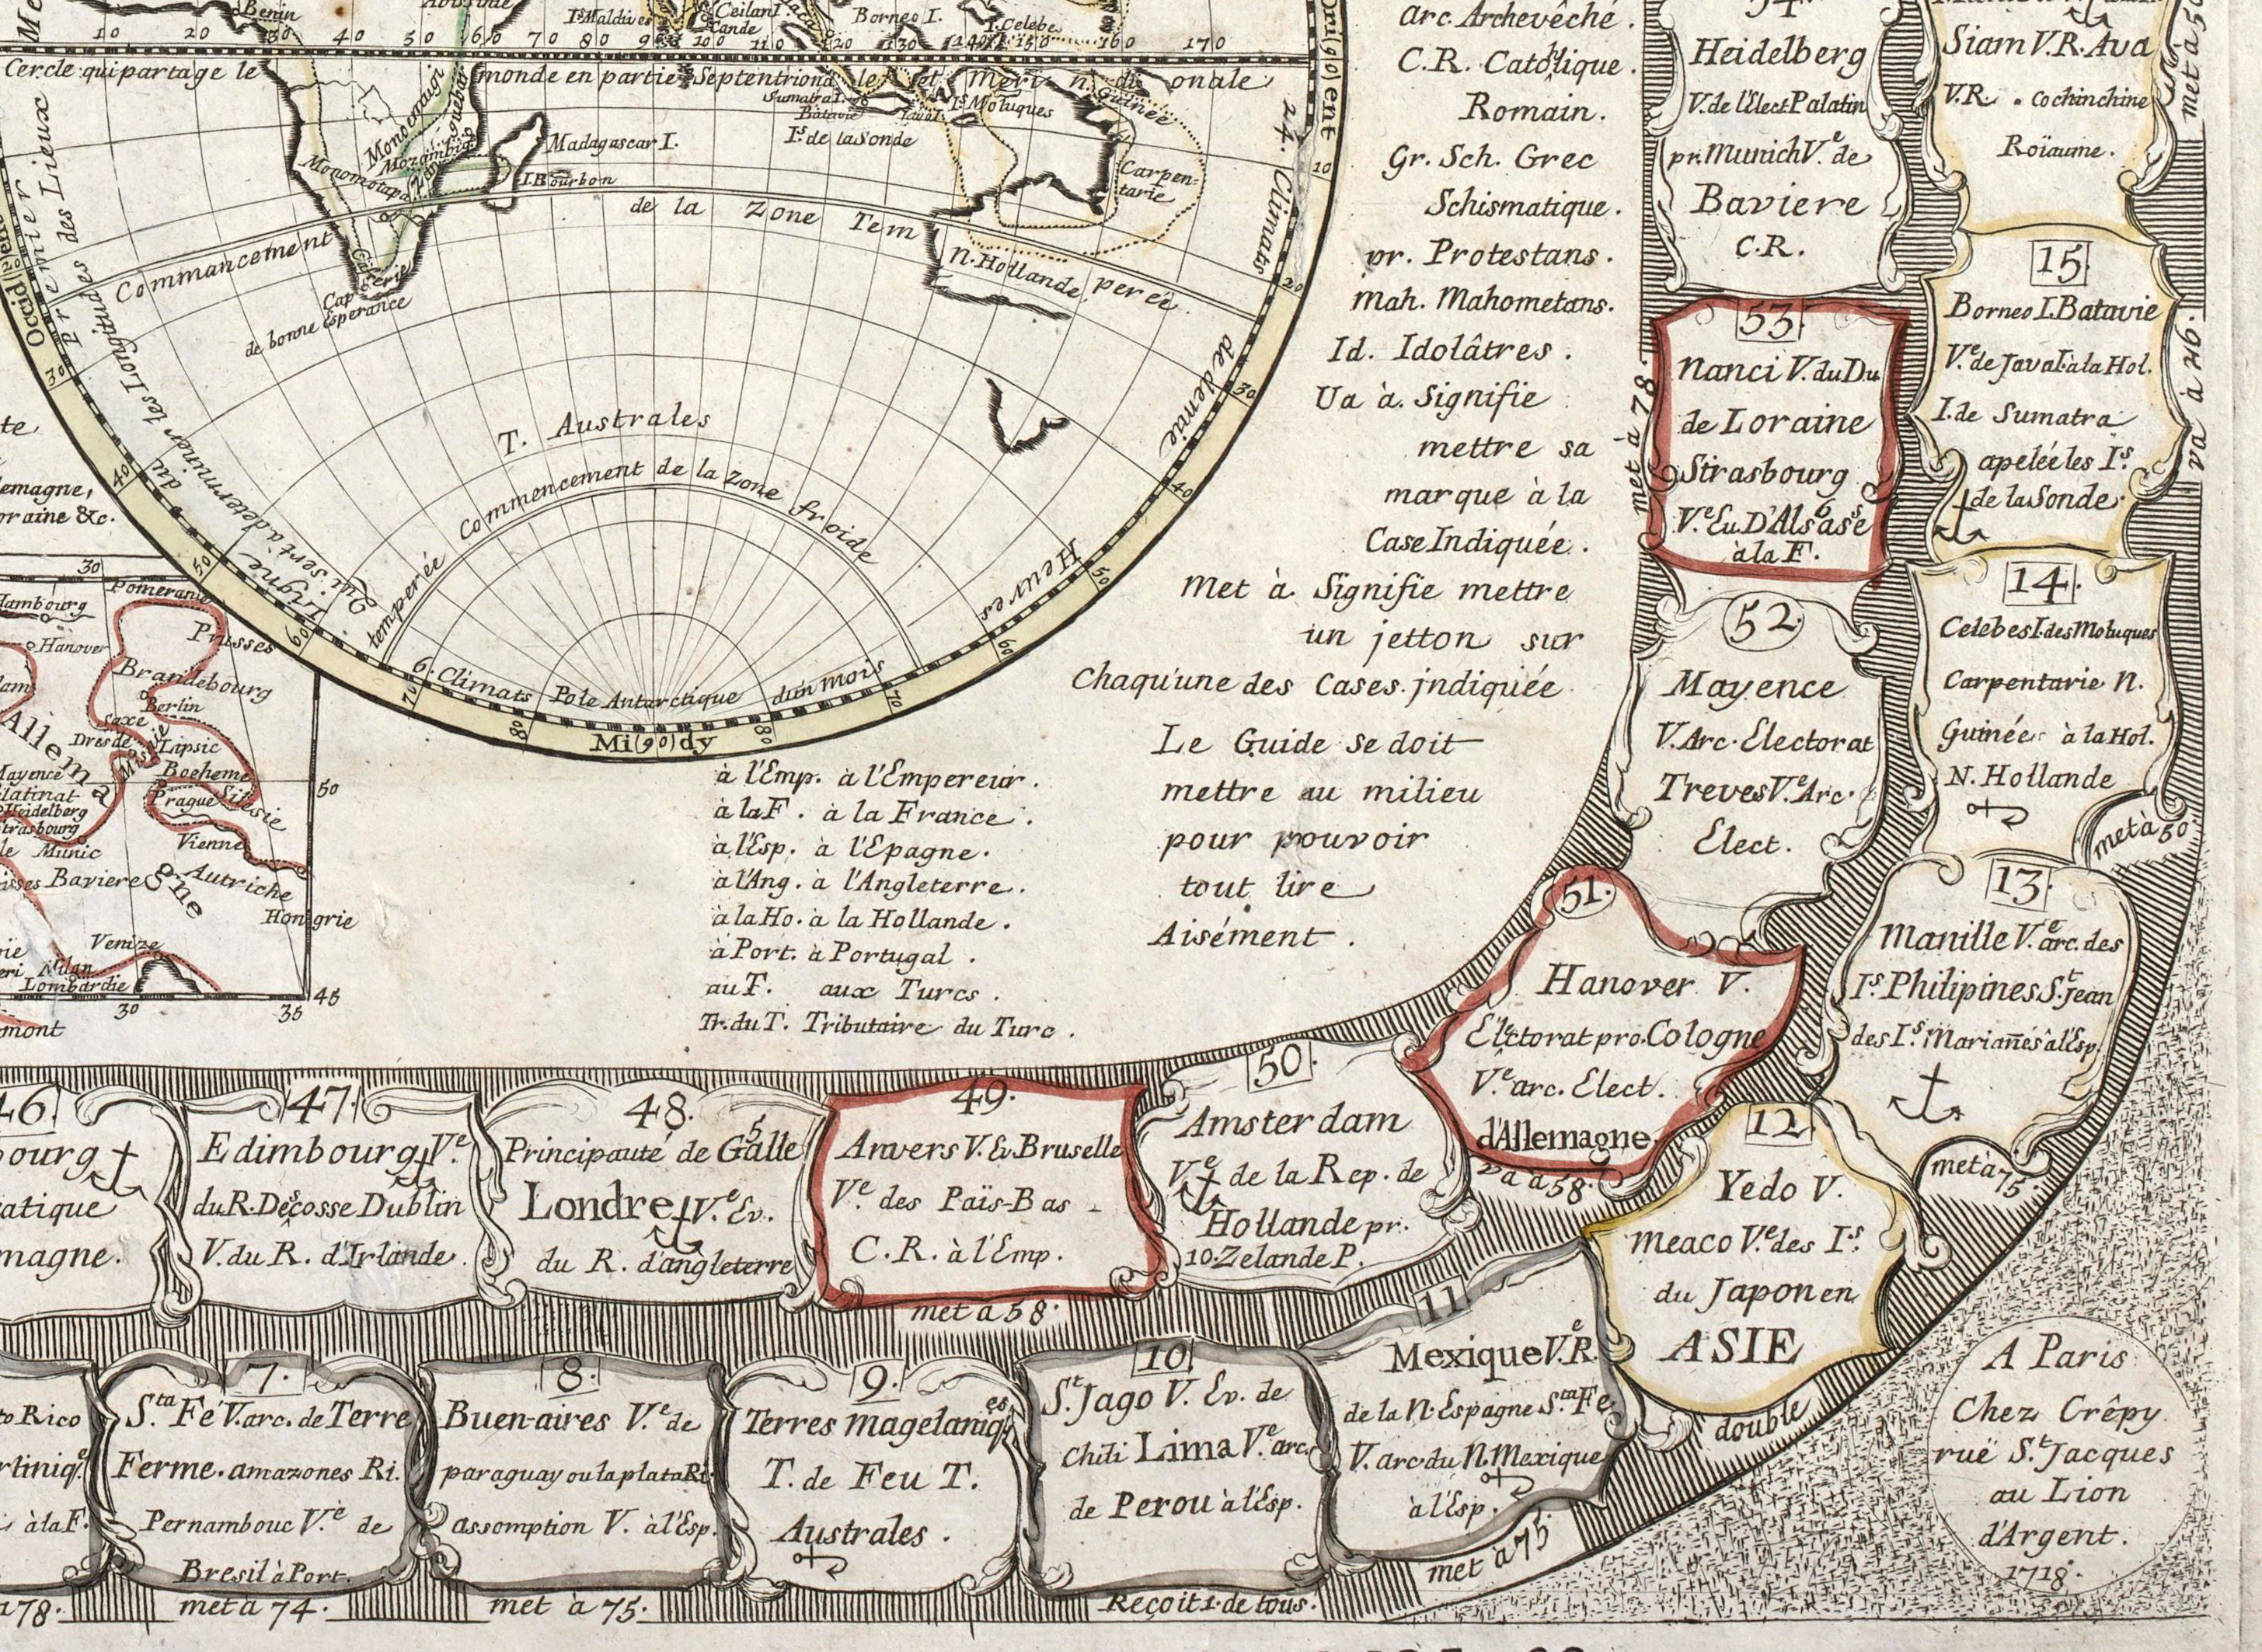 Benin
Abissinie
Is Maldives
Ceilan I.
Cande
Borneo I.
I. Celebes
10 20 30 40 50 60 70 80 90 100 110 120 130 140 150 160 170
Cercle qui partage le monde en partie Septentrionale et meri di onale
Monoemugi
Zanguebar
Monomotapa
Mozambiq.
Madagascar I.
I. Bourbon
Cafrerie
Cap
de bonne Esperance
Sumatra I.
Batavie
Java I.
Is. de la Sonde
Is. Moluques
n. Guinée
Carpen-
tarie
N. Hollande
Commancement de la Zone Tem perée
T. Australes
Commencement de la Zone froide
temperée
6. Climats Pole Antarctique dun mois
Mi(90)dy
Premier
des Lieux
Qui sert a determiner les Longitudes
24. Climats de demie Heures
Orig(0)ent
10
20
30
40
50
60
70
80
80
70
60
50
40
30
20
emagne,
oraine &c.
30
Pomeranie
Hambourg
Hanover
Prusses
Brandebourg
Berlin
Saxe
Dresde
Misnie
Lipsic
Boeheme
Prague
Silesie
Mayence
Palatinat
Heidelberg
Strasbourg
Munic
Vienne
Baviere
Autriche
Hongrie
Allemagne
Venize
Milan
Lombardie
50
45
30
35
mont
arc. Archevêché.
C.R. Catòlique.
Romain.
Gr. Sch. Grec
Schismatique.
pr. Protestans.
mah. Mahometans.
Id. Idolâtres.
Ua à. Signifie
mettre sa
marque à la
Case Indiquée.
Met à Signifie mettre
un jetton sur
Chaqu'une des Cases. jndiquée
Le Guide se doit
mettre au milieu
pour pouvoir
tout lire
Aisément.
à l'Emp. à l'Empereur.
à la F. à la France.
à l'Esp. à l'Epagne.
à l'Ang. à l'Angleterre.
à la Ho. à la Hollande.
à Port. à Portugal.
au T. aux Turcs.
Tr. du T. Tributaire du Turc.
54.
Heidelberg
V. de l'Elect Palatin
pr. Munich Ve. de
Baviere
C.R.
met à 78.
53.
Nanci V. du Du
de Loraine
Strasbourg
Ve. Ev. D'Alsasse
à la F.
52.
Mayence
V. Arc. Electorat
Treves Ve. Arc.
Elect.
51.
Hanover V.
Electorat pro. Cologne
Ve. arc. Elect.
d'Allemagne
va à 58.
50.
Amsterdam
Ve. de la Rep. de
Hollande pr.
10. Zelande P.
49.
Anvers V. Ev. Bruselle
Ve. des Païs-Bas
C.R. à l'Emp.
met à 58.
48.
Principauté de Galles
Londre Ve. Ev.
du R. d'angleterre
47.
Edimbourg Ve.
du R. D'escosse Dublin
V. du R. d'Irlande.
46.
bourg
atique
magne.
Siam V.R. Ava
V.R. Cochinchine
Roïaume.
met à 50
15.
Borneo I. Batavie
Ve. de Java I. à la Hol.
I. de Sumatra
apelée les Is.
de la Sonde
va à 26.
14.
Celebes I. des Moluques
Carpentarie N.
Guinée à la Hol.
N. Hollande
met à 50
13.
Manille Ve. arc. des
Is. Philipines St. Jean
des Is. Marianes à l'Esp.
met à 75.
12.
Yedo V.
Meaco Ve. des Is.
du Japon en
ASIE
double
11
Mexique V.R.
de la N. Espagne Sta. Fe
V. arc. du N. Mexique
à l'Esp.
met à 75.
10.
St. Jago V. Ev. de
Chili Lima Ve. arc.
de Perou à l'Esp.
Reçoit 1. de tous.
9.
Terres magelaniques
T. de Feu T.
Australes.
8.
Buen-aires Ve. de
paraguay ou la plata Ri.
assomption V. à l'Esp.
met à 75.
7.
Sta. Fé V. arc. de Terre
Ferme. amazones Ri.
Pernambouc Ve. de
Bresil à Port.
met à 74.
to Rico
rtiniq.
à la F.
à 78.
A Paris
Chez Crêpy
ruë St. Jacques
au Lion
d'Argent.
1718.